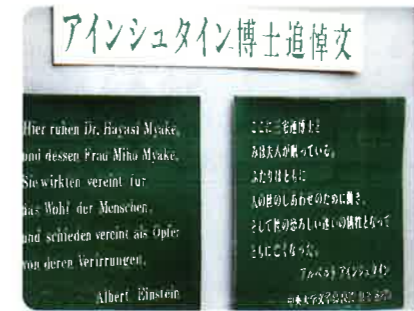 アインシュタイン博士追悼文
Hier ruhen Dr. Hayasi Myake,
und dessen Frau Miho Myake,
Sie wirkten vereint für
das Wohl der Menschen,
und schieden vereint als Opfer
von deren Verirrungen.
Albert Einstein
ここに三宅速博士と
みほ夫人が眠っている。
ふたりはともに
人の世のしあわせのために働き、
そして世の恐ろしい迷いの犠牲となって
ともに亡くなった。
アルベルト アインシュタイン
中央大学文学部教授